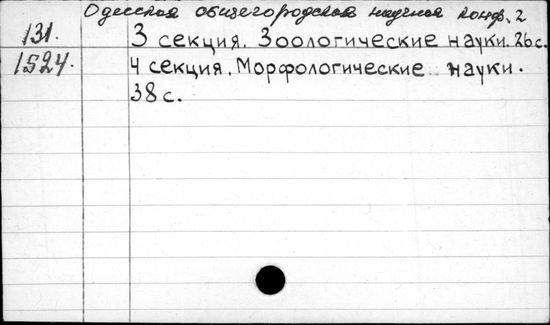 Одесская общегородская научная конф., 2
131. 3 секция. Зоологические науки. 26 с.
1524. 4 секция. Морфологические науки.
38 с.